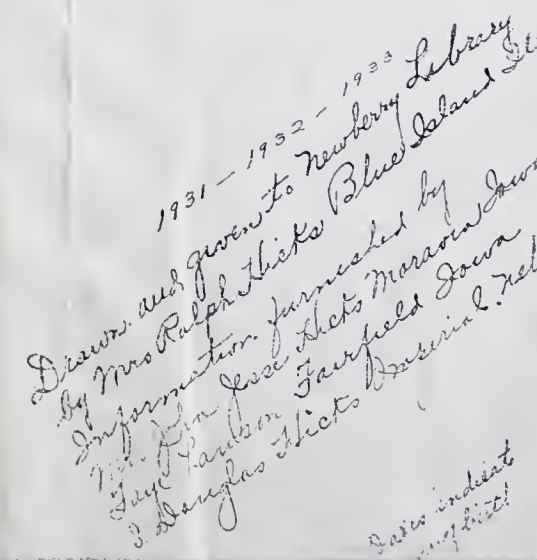 1931 - 1932 - 1933
Drawn and given to Newberry Library
by Mrs Ralph Hicks Blue Island Ill
Information furnished by
Mr. Jesse Hicks Moravia Iowa
Faye Lawson Fairfield Iowa
Douglas Hicks Imperial. Neb